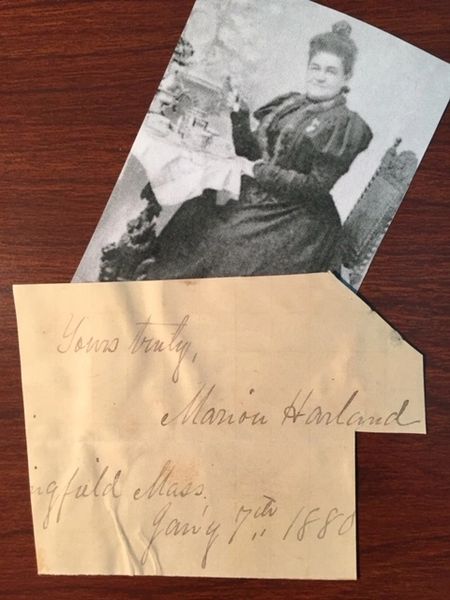 Yours truly,
Marion Harland
ngfield Mass.
Jan'y 7th., 1880